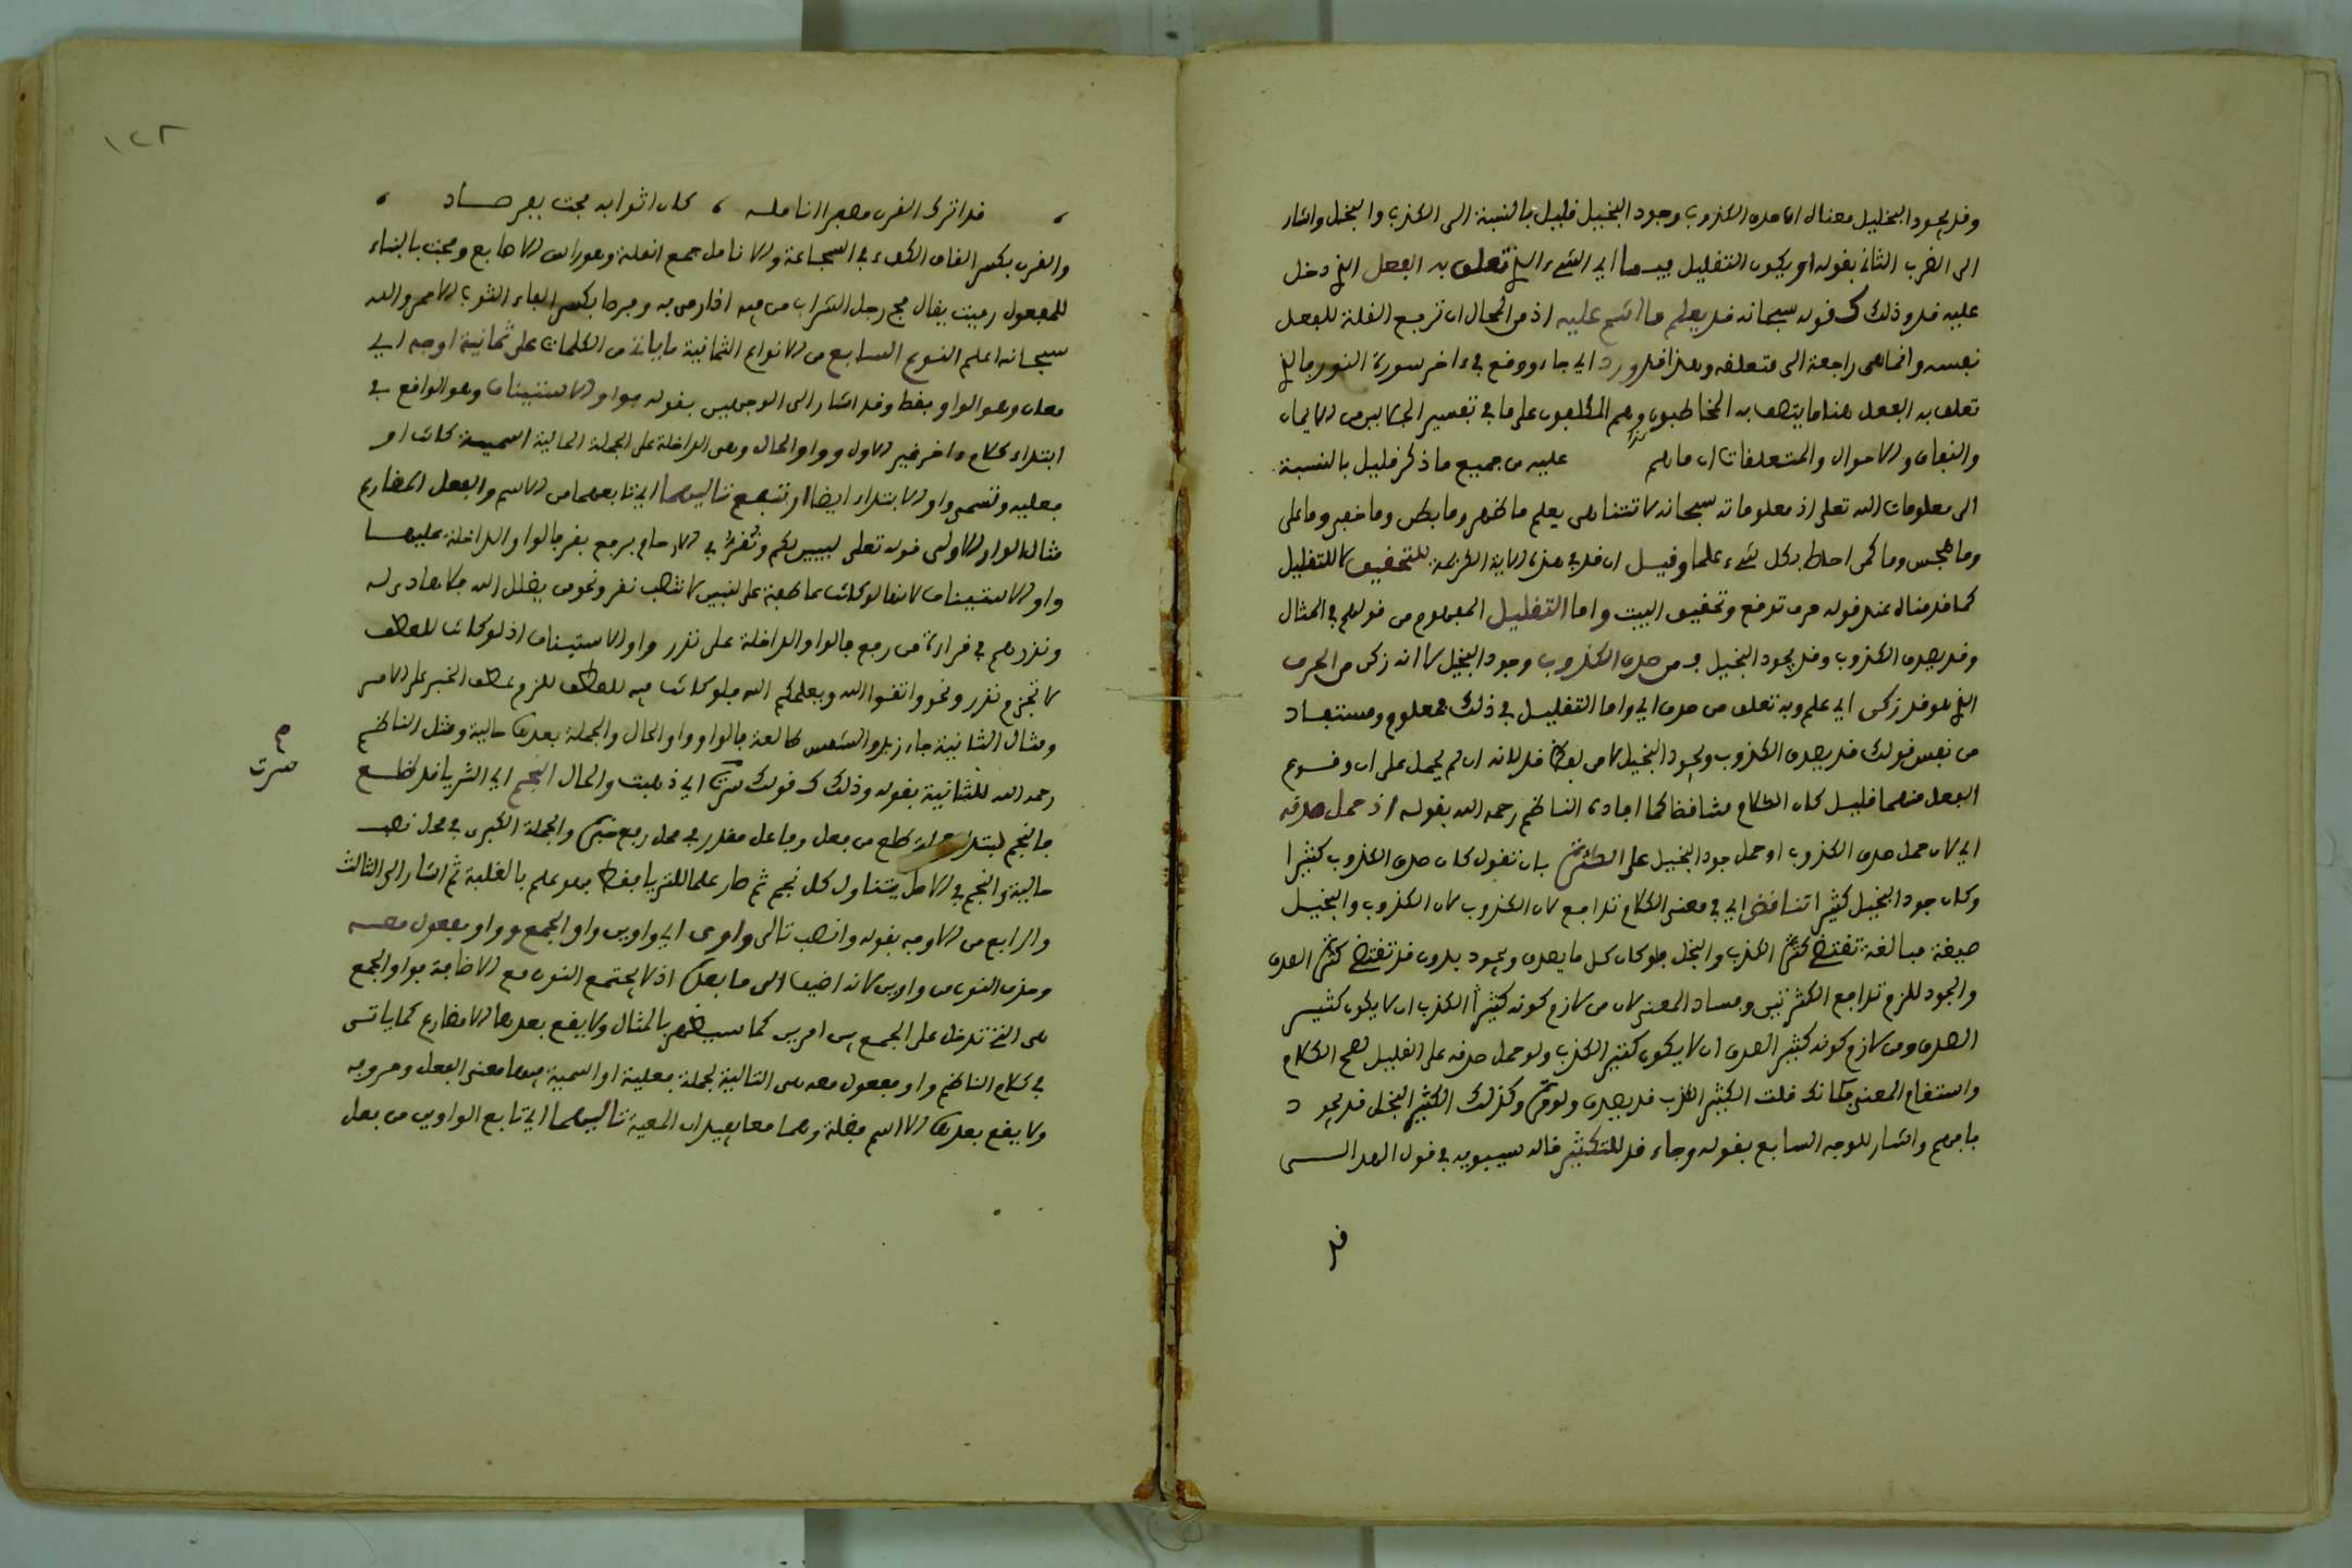 وقد يجود البخيل معناه ان صدق الكذوب وجود البخيل قليل بالنسبة الى الكذب والبخل واشار
الى الضرب الثاني بقوله او يكون التقليل فيما اي الشيء الذي تعلق به الفعل الذي دخل
عليه قد وذلك كقوله سبحانه قد يعلم ما انتم عليه اذ من المحال ان ترجع القلة للفعل
نفسه وانما هي راجعة الى متعلقه وهذا قد ورد اي جاء ووقع في ءاخر سورة النور فالذي
تعلق به الفعل هنا ما يتصف به المخاطبون وهم المكلفون على ما في تفسير الجلالين من الايمان
والنفاق والاحوال والمتعلقات ان ما هم عليه من جميع ما ذكر قليل بالنسبة
الى معلومات الله تعلى اذ معلوماته سبحانه لا تتناهى يعلم ما ظهر وما بطن وما خفي وما على
وما هجس وما كمن احاط بكل شيء علما وقيل ان قد في هذه الاية الكريمة للتحقيق لا للتقليل
كما قدمناه عند قوله حرف توقع وتحقيق البيت واما التقليل المفهوم من قولهم في المثال
وقد يصدق الكذوب وقد يجود البخيل فمن صدق الكذوب وجود البخيل لا انه زكن من الحرف
الذي هو قد زكن اي علم وبه تعلق من صدق اي واما التقليل في ذلك فمعلوم ومستفاد
من نفس قولك قد يصدق الكذوب ويجود البخيل لا من لفظ قد لانه ان لم يحمل على ان وقوع
الفعل منهما قليل كان الكلام متناقضا كما افاده الناظم رحمه الله بقوله اذ حمل صدقه
اي لان حمل صدق الكذوب او حمل جود البخيل على الكثرة بان تقول كان صدق الكذوب كثيرا
وكان جود البخيل كثيرا تناقض اي في معنى الكلام تدافع لان الكذوب لان الكذوب والبخيل
صيغة مبالغة تقتضي كثرة الكذب والبخل فلو كان كل ما يصدق ويجود بدون قد تقتضي كثرة الصدق
والجود للزم تدافع الكثرتين وفساد المعنى لان من لازم كونه كثير الكذب ان لا يكون كثير
الصدق ومن لازم كونه كثير الصدق ان لا يكون كثير الكذب ولو حمل صدقه على القليل لصح الكلام
واستقام المعنى فكانك قلت الكثير الكذب قد يصدق ولو مرة وكذلك الكثير البخل قد يجود
فافهم واشار للوجه السابع بقوله وجاء قد للتكثير قاله سيبويه في قول الهذلي
قد
١٢٢
قد اترك القرن مصفرا انامله ، كان اثوابه مجت بفرصاد
والقرن بكسر القاف الكفء في الشجاعة والانامل جمع انملة وهو راس الاصابع ومجت بالبناء
للمفعول رميت يقال مج رجل الشراب من فيه اذا رمى به وفرصا بكسر الفاء الثوب الاحمر والله
سبحانه اعلم النوع السابع من الانواع الثمانية ما ياتي من الكلمات على ثمانية اوجه اي
معان وهو الواو فقط وقد اشار الى الوجهين بقوله فواو الاستيناف وهو الواقع في
ابتداء كلام ءاخر غير الاول وواو الحال وهي الداخلة على الجملة الحالية اسمية كانت او
فعلية وتسمى واو الابتداء ايضا ارتفع تاليهما اي تابعهما من الاسم والفعل المضارع
مثال الواو الاولى قوله تعلى لنبين لكم ونقر في الارحام برفع نقر فالواو الداخلة عليها
واو الاستيناف لانها لو كانت عاطفة على نبين لانتصب نقر ونحو من يضلل الله فلا هادي له
ونذرهم في قراءة من رفع فالواو الداخلة على نذر واو الاستيناف اذ لو كانت للعطف
لا نجزم نذر ونحو واتقوا الله ويعلمكم الله فلو كانت فيه للعطف للزم عطف الخبر على الامر
ومثال الثانية جاء زيد والشمس طالعة فالواو واو الحال والجملة بعدها حالية ومثل الناظم
رحمه الله للثانية بقوله وذلك كقولك سرت اي ذهبت والحال النجم اي الثريا قد طلع
م
سرت
فالنجم مبتدا جملة طلع من فعل وفاعل مقدر في محل رفع خبره والجملة الكبرى في محل نصب
حالية والنجم في الاصل يتناول كل نجم ثم صار علما للثريا فقط فهو علم بالغلبة ثم اشار الى الثالث
والرابع من الاوجه بقوله وانصب تالي واوي اي واوين واو الجمع وواو مفعول معه
وحذف النون من واوين لانه اضيف الى ما بعده اذ لا يجتمع النون مع الاضافة فواو الجمع
هي التي تدخل على الجمع بين امرين كما سيظهر بالمثال ولا يقع بعدها الا مضارع كما ياتي
في كلام الناظم واو مفعول معه هي التالية لجملة فعلية او اسمية فيها معنى الفعل وحروفه
ولا يقع بعدها الا اسم فضلة وهما معا يفيدان المعية تاليهما اي تابع الواوين من فعل